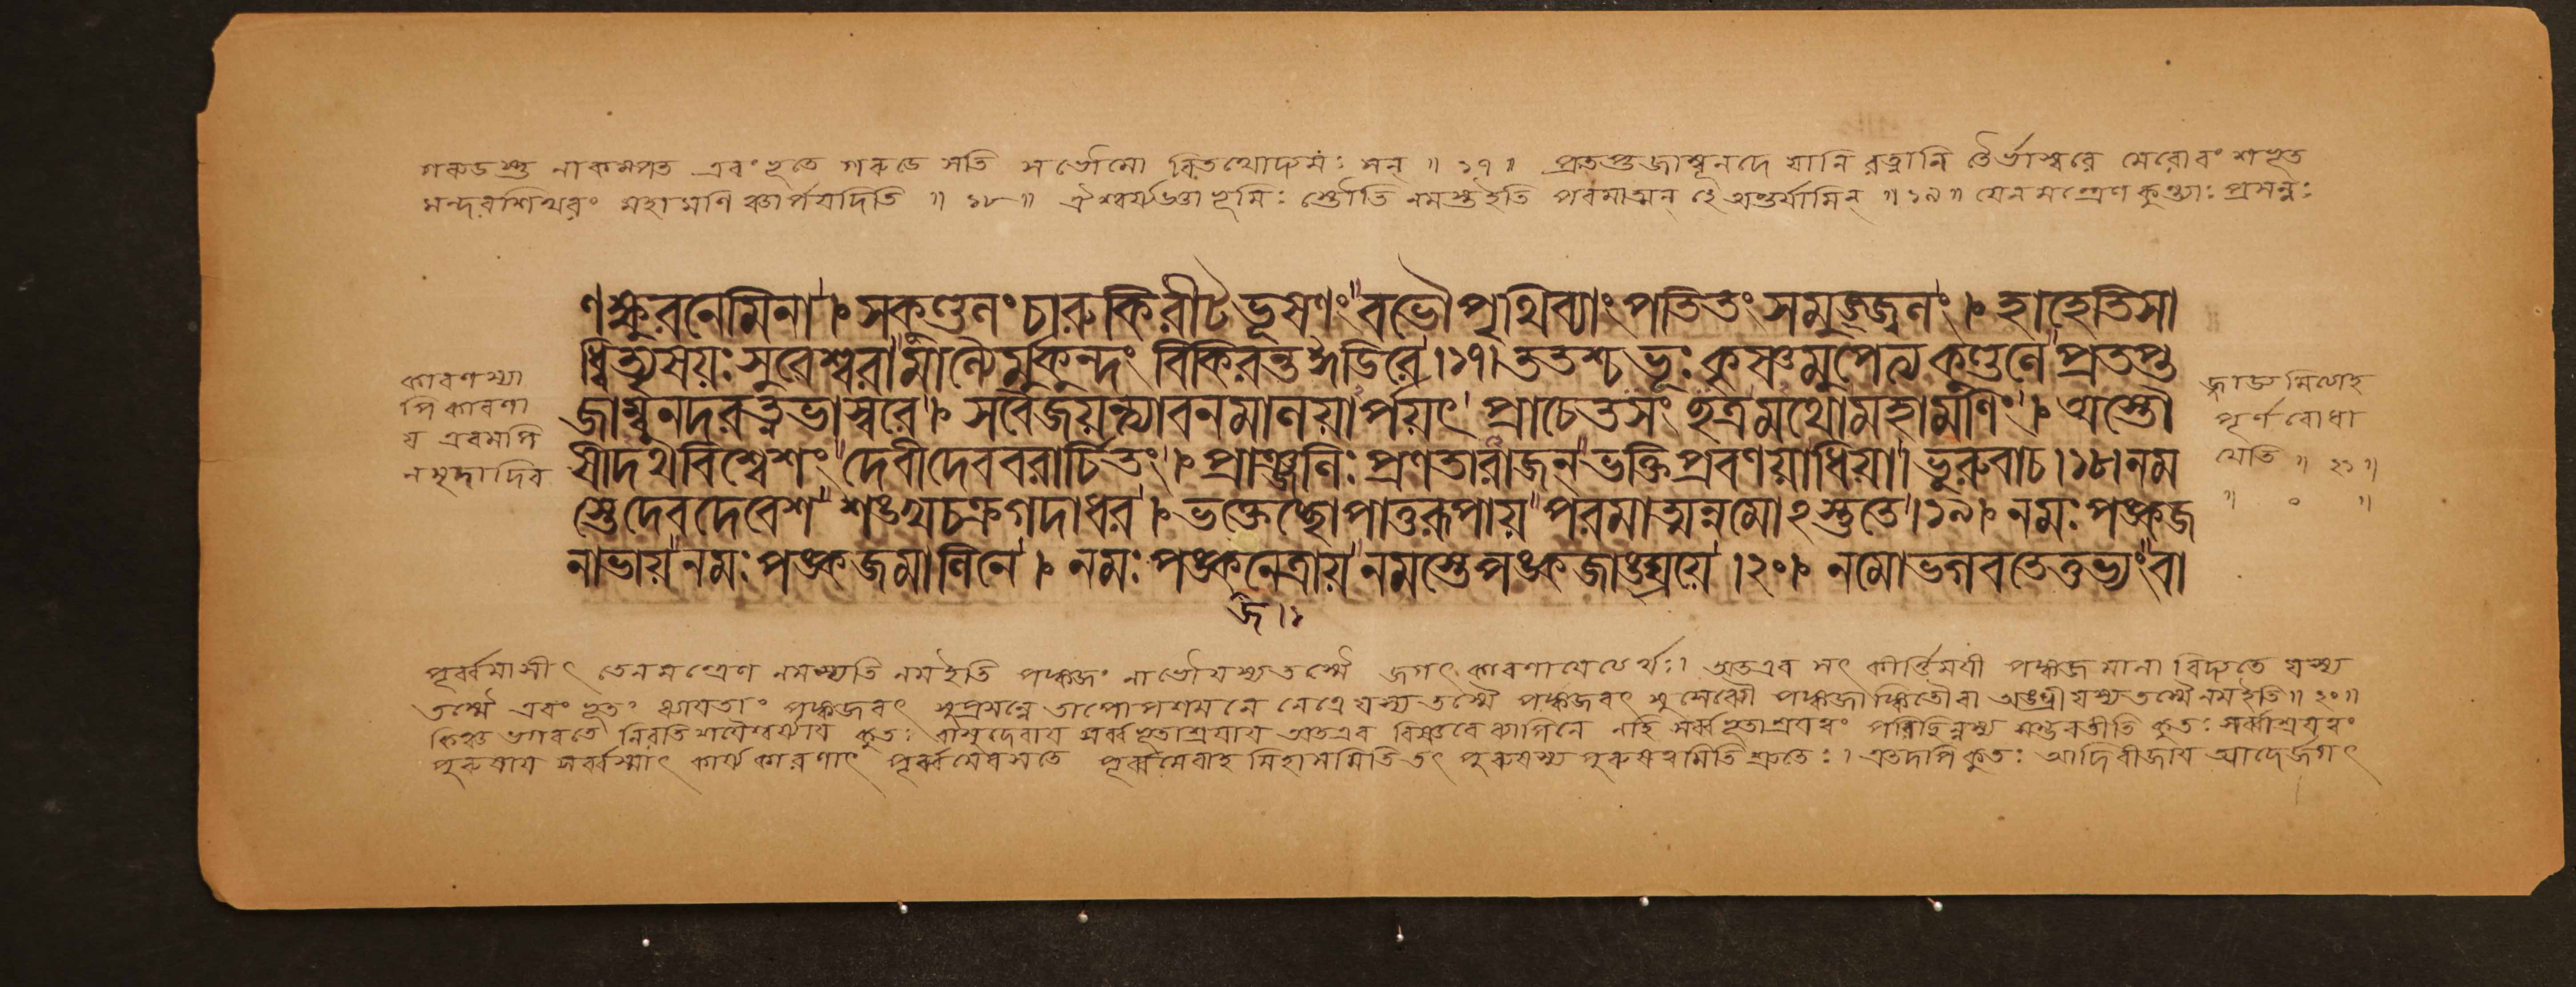 গরুডস্তু নাকমপত এবংভূতে গরুডে সতি সভৌমো বিতথোদ্যমঃ সন্ ॥ ১৭ ॥ প্রতপ্তজাম্বূনদে যানি রত্নানি তৈর্ভাস্বরে মেরোবং শভূত
মন্দরশিখরং মহামণি ঞ্চার্পযদিতি ॥ ১৮ ॥ ঐশ্বর্য্য ভূমিঃ স্তৌতি নমস্তইতি পরমাত্মন্ হেঅন্তর্যামিন্ ॥ ১৯ ॥ যেনমন্ত্রেণ কুন্ত্যাঃ প্রসন্নঃ
ণক্ষুরনেমিনা । সকুণ্ডলং চারুকিরীটভূষণং বভৌপৃথিব্যাং পতিতং সমুজ্জ্বলং । হাহেতিসা
ধ্বিত্যৃষয়ঃ সুরেশ্বরা মাল্যৈর্মুকুন্দং বিকিরন্তঈডিরে ।১৭। ততশ্চভূঃ কৃষ্ণমুপেত্যকুণ্ডলে প্রতপ্ত
জাম্বুনদরত্নভাস্বরে । সবৈজয়ন্ত্যাবনমালয়ার্পয়ৎ প্রাচেতসং ছত্রমথোমহামণিং । অস্তৌ
ষীদথবিশ্বেশং দেবীদেববরার্চিতং । প্রাঞ্জলিঃ প্রণতারাজন্ ভক্তিপ্রবণয়াধিয়া । ভুরুবাচ ।১৮। নম
স্তেদেবদেবেশ শঙ্খচক্রগদাধর । ভক্তেচ্ছোপাত্তরূপায় পরমাত্মন্নমোঽস্তুতে ।১৯। নমঃ পঙ্কজ
নাভায় নমঃ পঙ্কজমালিনে । নমঃ পঙ্কনেত্রায় নমস্তেপঙ্কজাঙ্ঘ্রয়ে ।২০। নমোভগবতেতুভ্যং বা
জ ।১
কারণস্যা
পি কারণা
য এবমপি
নমৃদ্বাদিব
জ্জাড্যমিত্যাহ
পূর্ণবোধা
যেতি ॥ ২১ ॥
॥ ০ ॥
পূর্ব্বমাসীৎ তেনমন্ত্রেণ নমস্যতি নমইতি পঙ্কজং নাভৌযস্যতস্মৈ জগৎকারণাযেত্যর্থঃ। অতএব সৎ কীর্ত্তিময়ী পঙ্কজমালা বিদ্যতে যস্য
তস্মৈ এবং ভূতং ধ্যাযতাং পঙ্কজবৎ সুপ্রসন্নে তাপোপশমনে নেত্রে যস্যতস্মৈ পঙ্কজবৎ সুসেব্যৌ পঙ্কজাঙ্কিতৌবা অঙ্ঘ্রীযস্যতস্মৈ নমইতি ॥ ২০ ॥
কিঞ্চ ভগবতে নিরতিশযৈশ্বর্য্যায কুতঃ বাসুদেবায সর্ব্বভূতাশ্রযায অতএব বিষ্ণবে ব্যাপিনে নহি সর্ব্বভূতাশ্রযত্বং পরিচ্ছিন্নস্য সম্ভবতীতি কুতঃ সর্ব্বাশ্রযত্বং
পুরুষায সর্ব্বস্মাৎ কার্য্যকারণাৎ পূর্ব্বমেবসতে পূর্ব্বমেবাহ মিহাসমিতি তৎ পুরুষস্য পুরুষত্বমিতি শ্রুতেঃ । এতদপি কুতঃ আদিবীজায আদের্জগৎ